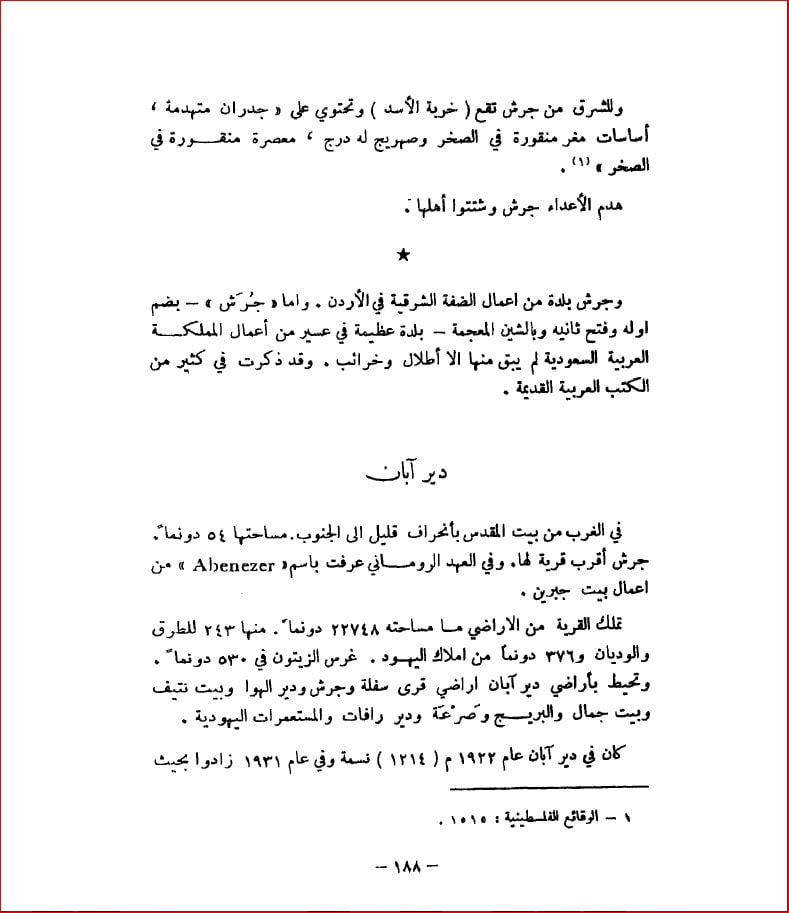 وللشرق من جرش تقع ( خربة الأسد ) وتحتوي على « جدران متهدمة ،
أساسات مغر منقورة في الصخر وصهريج له درج ، معصرة منقــورة في
الصخر » (١) .
هدم الأعداء جرش وشتتوا أهلها .
★
وجرش بلدة من اعمال الضفة الشرقية في الأردن . واما « جُرَش » – بضم
اوله وفتح ثانيه وبالشين المعجمة – بلدة عظيمة في عسير من أعمال المملكــة
العربية السعودية لم يبق منها الا أطلال وخرائب . وقد ذكرت في كثير من
الكتب العربية القديمة .
دير آبان
في الغرب من بيت المقدس بأنحراف قليل الى الجنوب. مساحتها ٥٤ دونماً.
جرش أقرب قرية لها. وفي العهد الرومــاني عرفت باسم « Abenezer » من
اعمال بيت جبرين .
تملك القرية من الاراضي مـا مساحته ٢٢٧٤٨ دونماً . منها ٢٤٣ للطرق
والوديان و٣٧٦ دونماً من املاك اليهود . غرس الزيتون في ٥٣٠ دونماً .
وتحيط بأراضي دير آبان اراضي قرى سفلة وجرش ودير الهوا وبيت نتيف
وبيت جمال والبريــج وصَرْعَة ودير رافات والمستعمرات اليهودية .
كان في دير آبان عام ١٩٢٢ م ( ١٢١٤ ) نسمة وفي عام ١٩٣١ زادوا بحيث
١ – الوقائع الفلسطينية : ١٥١٥ .
– ١٨٨ –